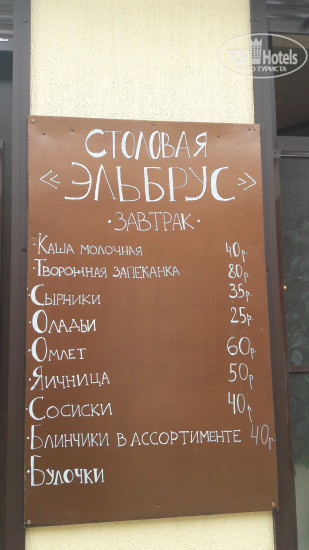 СТОЛОВАЯ
«ЭЛЬБРУС»
·ЗАВТРАК·
·КАША МОЛОЧНАЯ 40р
·ТВОРОЖНАЯ ЗАПЕКАНКА 80р
·СЫРНИКИ 35р
·ОЛАДЬИ 25р.
·ОМЛЕТ 60р
·ЯИЧНИЦА 50р
·СОСИСКИ 40р
·БЛИНЧИКИ В АССОРТИМЕНТЕ 40р
·БУЛОЧКИ
TOP Hotels